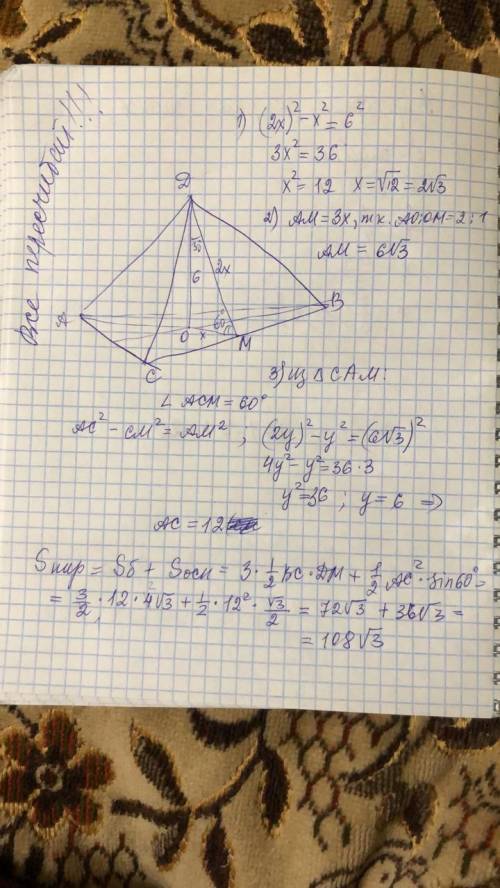 Все пересчитай!!!
1) (2x)² - x² = 6²
3x² = 36
x² = 12 x = √12 = 2√3
2) AM = 3x, т.к. AO:OM = 2:1
AM = 6√3
D
30
6
2x
60°
B
O
x
M
C
3) Из △ CAM:
∠ ACM = 60°
AC² - CM² = AM² ; (2y)² - y² = (6√3)²
4y² - y² = 36·3
y² = 36 ; y = 6 ⇒
AC = 12
Sпир = Sб + Sосн = 3·½ BC·DM + ½ AC²·sin60° =
= 3/2 · 12 · 4√3 + ½ · 12² · √3/2 = 72√3 + 36√3 =
= 108√3